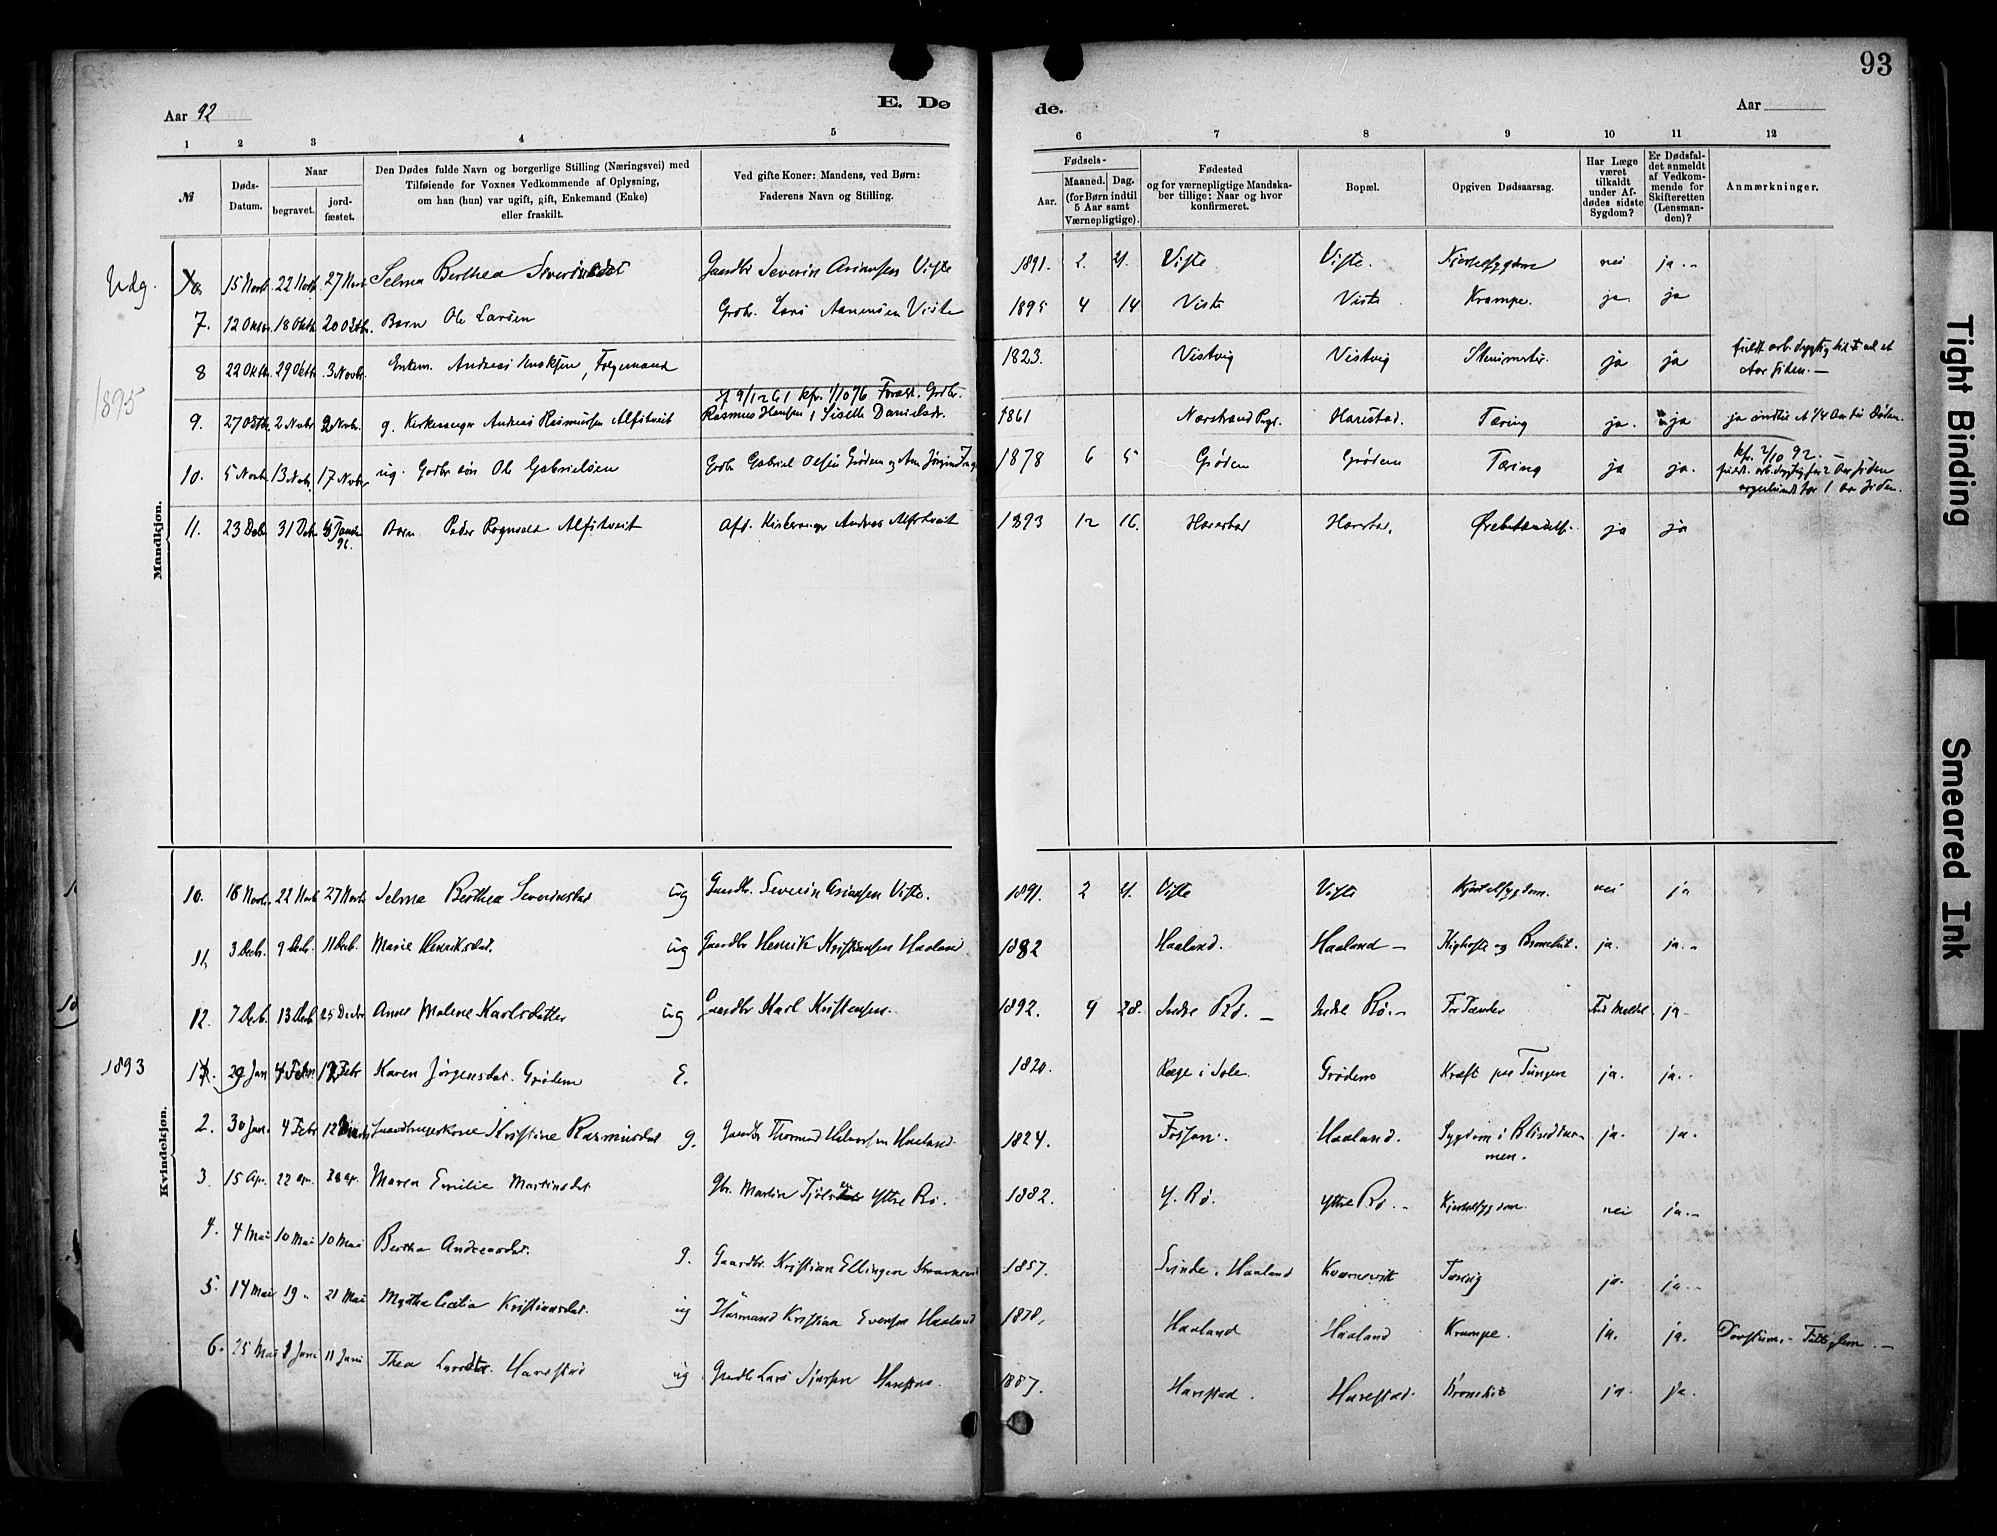 93
Aar 92
E. Dø
de.
Aar
1 2 3 4 5 6 7 8 9 10 11 12
№
Døds-
Datum.
Naar
begravet.
jord-
fæstet.
Den Dødes fulde Navn og borgerlige Stilling (Næringsvei) med
Tilføiende for Voxnes Vedkommende af Oplysning,
om han (hun) var ugift, gift, Enkemand (Enke)
eller fraskilt.
Ved gifte Koner: Mandens, ved Børn:
Faderens Navn og Stilling.
Fødsels-
Aar.
Maaned. Dag.
(for Børn indtil
5 Aar samt
Værnepligtige).
Fødested
og for værnepligtige Mandska-
ber tillige: Naar og hvor
konfirmeret.
Bopæl.
Opgiven Dødsaarsag.
Har Læge
været
tilkaldt
under Af-
dødes sidste
Sygdom?
Er Dødsfal-
det anmeldt
af Vedkom-
mende for
Skifteretten
(Lensman-
den)?
Anmærkninger.
Udg. 15 Novb. 22 Novb. 27 Novb. Selma Berthea Severinsdat Gaardbr Severin Viste 1891. 2. 21. Viste Viste. Kjertelsygdom nei ja. -
7. 12 Oktb. 18 Oktb. 20 Oktb. Barn Ole Larsen Grdbr. Lars Viste 1895 4 14 Viste Viste Krampe. ja. ja
8 22 Oktb. 29 Oktb. 3 Novbr. Enkem. Andreas Knutsen, Folgemand 1823. Vistvig Vistvig ja ja
1895
9. 27 Oktb. 2 Novbr. 2 Novbr. g. Kirkesanger Andreas Rasmussen Alfstveit Rasmus Hansen / Siselle Danielsdr. 1861 Nærstrand Pgd. Harestad. Tæring ja. ja
10. 5 Novbr 13 Novbr. 17 Novbr ug. Grdbr søn Ole Gabrielsen Grdbr Gabriel Olsen Grødem og 1878 6 5 Grødem Grødem Tæring ja ja. kf. 2/10 92.
11. 23 Debr 31 Debr Barn Peder Rognvald Alfstveit Afd. Kirkesanger Andreas Alfstveit 1893 12 16. Harestad Harestad. ja ja
Mandkjøn.
10. 18 Novb. 22 Novb 27 Novb Selma Berthea Severinsdat ug Gaardbr. Severin Viste. 1891. 2 21. Viste Viste Kjertelsygdom. nei ja
11. 3 Decb. 9 Decb. 11 Decb. Marie Henriksdat. ug Gaardbr Henrik Kristiansen Haaland. 1882 Haaland. Haaland - Kighoste og Bronchit. ja. ja. -
12. 7 Decb. 13 Decb 25 Decbr Anne Malene Karlsdatter ug Gaardbr Karl Kristensen. 1892. 9 28. Indre Rø. - Indre Rø. - For Tænder ja -
1893
1. 29 Jan 4 Febr 12 Febr Karen Jørgensdat. Grødem E. 1820. Ræge i Sole. Grødem Kræft paa Tungen ja. ja. -
2. 30 Jan. 4 Febr 12 Gaardbrugerkone Kristine Rasmusdat g. Gaardbr Thormod Haaland. 1824. Fossan. Haaland. Sygdom i Blindtar-
men. ja. ja.
3. 15 Apr. 22 apr. 28 apr. Maren Emilie Martinsdat gbr. Martin Ytre Rø. 1882. Y. Rø. Ytre Rø. - Kjertelsygdom. nei ja. -
4. 4 Mai 10 Mai 10 Mai Bertha Andreasdat. g. Gaardbr. Kristian Ellingsen 1857. i Haaland Kvernevik Tæring ja. ja. -
5. 14 Mai 19 „ 21 Mai Cecilia Kristiansdat. ug Husmand Kristian Evensen Haaland 1878. Haaland Haaland Krampe. ja. ja.
6. 25 Mai Juni 11 Juni Thea Larsdtr. Harestad ug. Gaardb Lars Harestad. 1887. Harestad. Harestad. Bronchit ja. ja.
Kvindekjøn.
Tight Binding
Smeared Ink